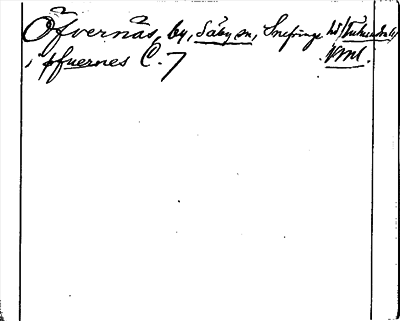 Öfvernäs, by, Säby sn, Snefringe hd
Vml.
i øfuernes C. 7